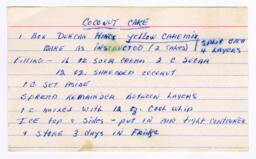 COCONUT CAKE
1 BOX DUNCAN HINES YELLOW CAKE MIX
BAKE AS INSTRUCTED (2 CAKES) SPLIT EACH
4 LAYERS
FILLING - 16 OZ SOUR CREAM 2 C. SUGAR
12 OZ. SHREDDED COCONUT
1 C SET ASIDE
SPREAD REMAINDER BETWEEN LAYERS
1 C MIXED WITH 12 OZ. COOL WHIP
ICE TOP & SIDES - PUT IN AIR TIGHT CONTAINER
& STORE 3 DAYS IN FRIDGE